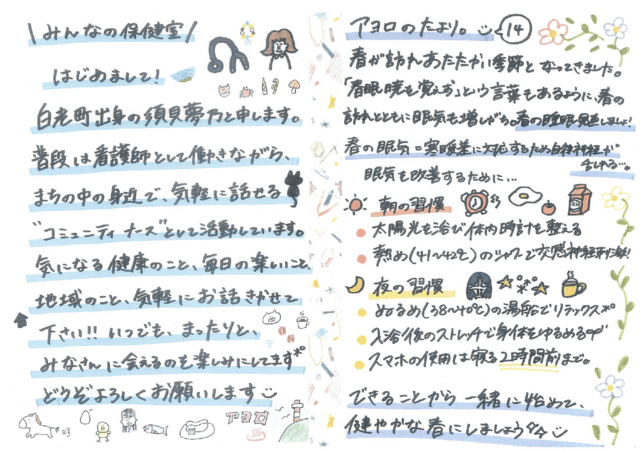 みんなの保健室
はじめまして！
白老町出身の須貝夢乃と申します。
普段は看護師として働きながら、
まちの中の身近で、気軽に話せる
"コミュニティナース"として活動しています。
気になる健康のこと、毎日の楽しいこと、
地域のこと、気軽にお話きかせて
下さい!!いつでも、まったりと、
みなさんに会えるのも楽しみにしてます
どうぞよろしくお願いします
アヨロ
アヨロのたより。 14
春が訪れあたたかい季節となってきました。
「春眠暁を覚えず」という言葉もあるように、春の
訪れとともに眠気も増しがち。春の睡眠見直しましょ！
春の眠気=寒暖差に対応するため自律神経が
みだれる…。
眠気を改善するために…
朝の習慣
太陽光を浴び体内時計を整える
熱め(41〜42℃)のシャワーで交感神経刺激！
夜の習慣
ぬるめ(38〜40℃)の湯船でリラックス
入浴後のストレッチで身体をゆるめる
スマホの使用は寝る2時間前まで。
できることから一緒に始めて、
健やかな春にしましょう